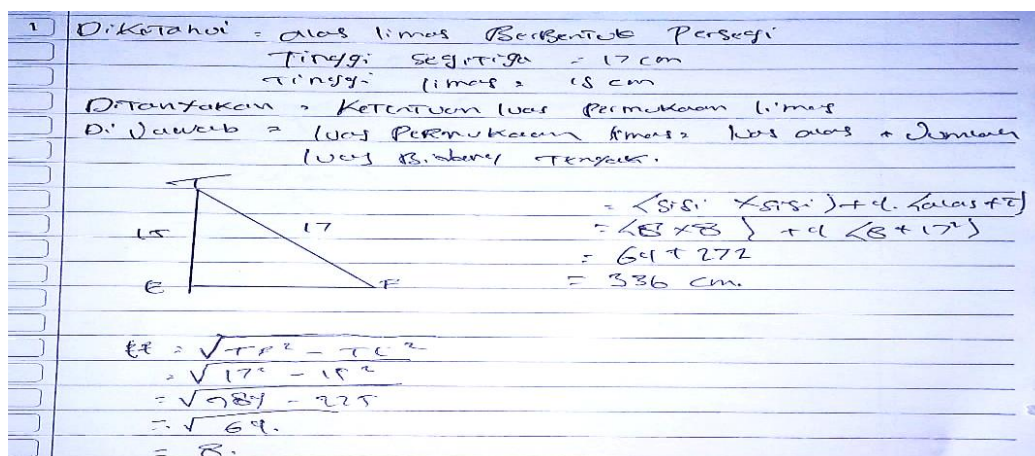 1 Diketahui = alas limas Berbentuk Persegi
Tinggi Segitiga = 17 cm
Tinggi limas = 15 cm
Ditanyakan = Ketentuan luas Permukaan limas
Di Jawab = luas Permukaan limas = luas alas + Jumlah
luas Bidang Tengak.
T
15
17
E
F
= (sisi × sisi) + 4. (alas + t)
= (8 × 8) + 4 (8 + 17²)
= 64 + 272
= 336 cm.
= √TF² - TE²
= √17² - 15²
= √289 - 225
= √64.
= 8.